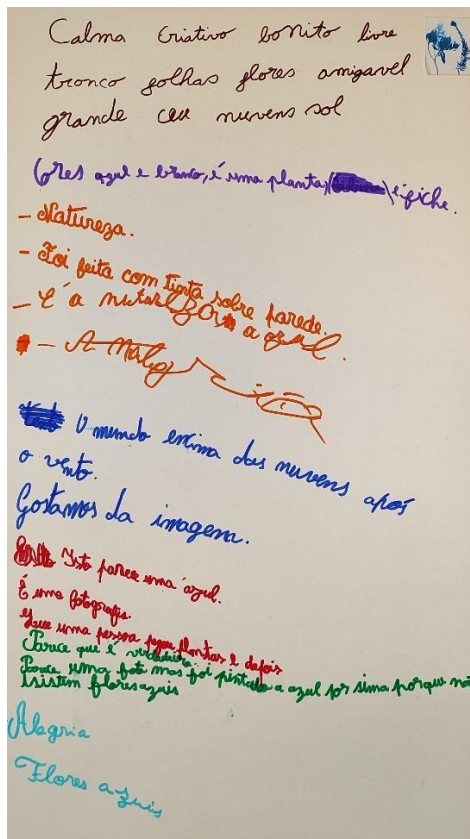 Calma criativo bonito livre
tronco folhas flores amigavel
grande ceu nuvens sol
Cores azul e branco, é uma planta, é fiche.
- Natureza.
- Foi feita com tinta sobre parede.
- É a a azul.
- A
O mundo encima das nuvens após
o vento.
Gostamos da imagem.
Isto parece uma azul.
É uma fotografia.
uma pessoa pegou plantas e depois
Parece que é verdadeira.
Parece uma foto mas foi pintado a azul por sima porque não
isistem flores azuis
Alegria
Flores azuis